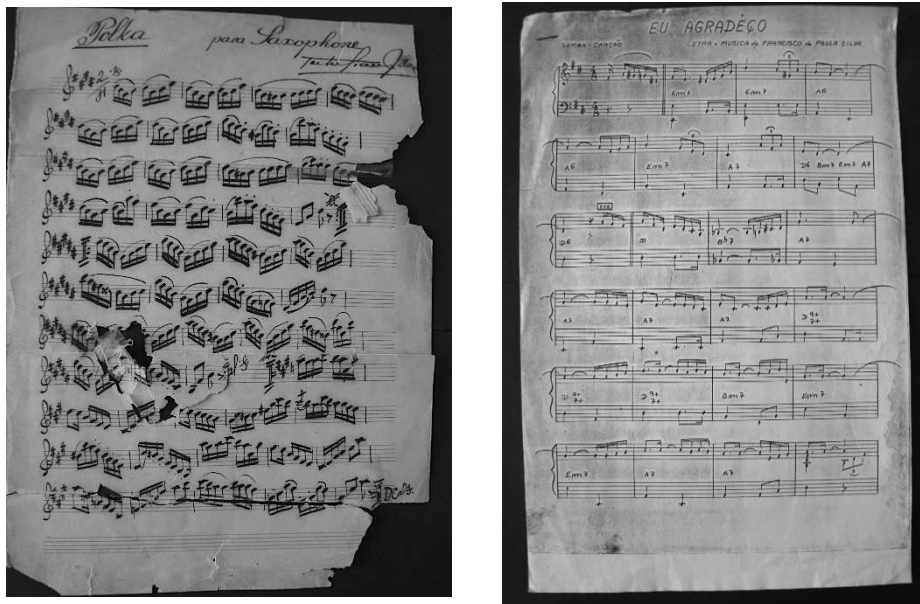 Polka
para Saxophone
D.C. al
EU AGRADÊÇO
SAMBA - CANÇÃO LETRA e MUSICA de FRANCISCO de PAULA SILVA
Em7 Em7 A6
A6 Em7 A7 D6 Bm7 Em7 A7
D6 D Bb7 A7
A7 A7 A7 D 9+ 7+
D 9+ 7+ D 9+ 7+ Bm7 Em7
Em7 A7 A7